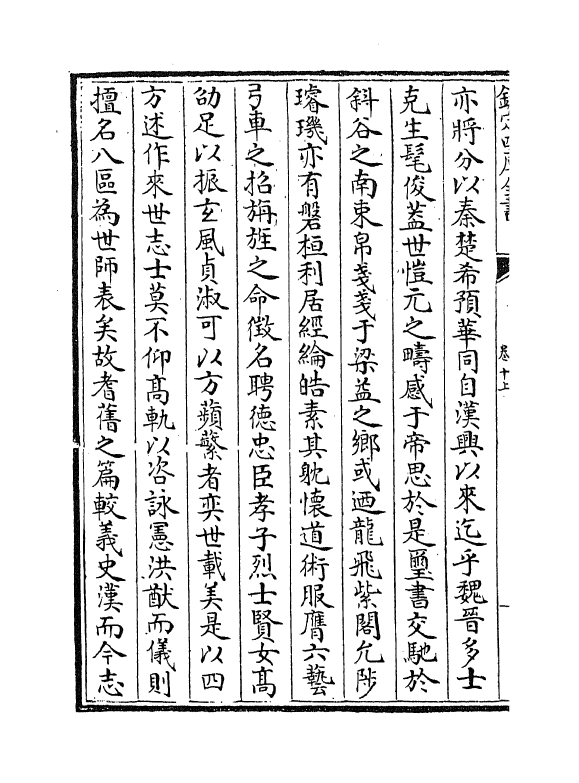 欽定四庫全書
卷十上
亦將分以秦楚希預華同自漢興以來迄乎魏晉多士
克生髦俊蓋世愷元之疇感于帝思於是璽書交馳於
斜谷之南束帛戔戔于梁益之鄉或迺龍飛紫閣允陟
璿璣亦有磐桓利居經綸皓素其躭懷道術服膺六藝
弓車之招旃旌之命徵名聘德忠臣孝子烈士賢女高
劭足以振玄風貞淑可以方蘋蘩者奕世載美是以四
方述作來世志士莫不仰高軌以咨詠憲洪猷而儀則
擅名八區為世師表矣故耆舊之篇較義史漢而今志